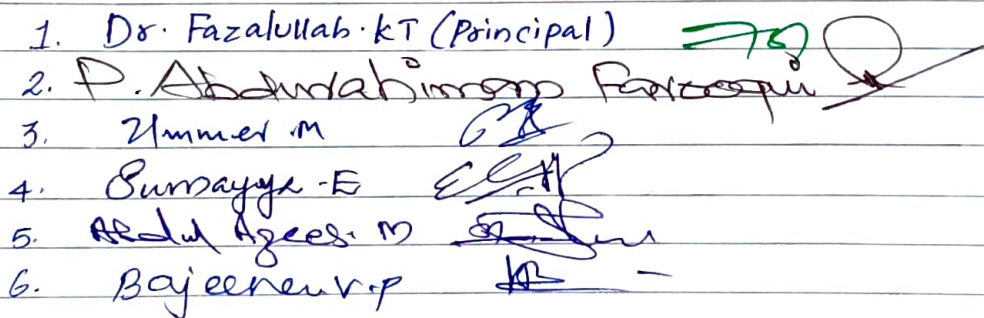 1. Dr. Fazalullah. KT (Principal)
2. P. Abdurahiman Farooqui
3. Ummer .M
4. Sumayya -E
5. Abdul Azees. M
6. V.P